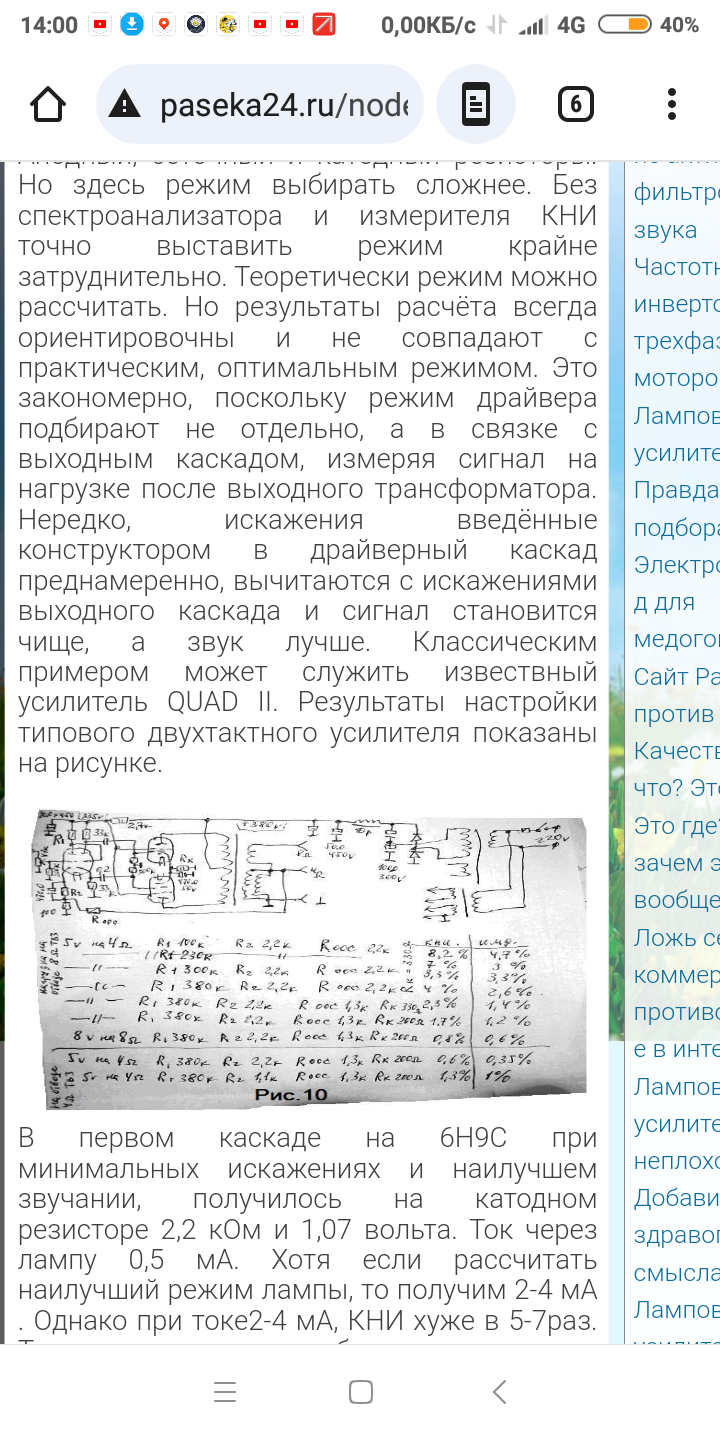 14:00
0,00КБ/с
4G
40%
paseka24.ru/node
6
Но здесь режим выбирать сложнее. Без
спектроанализатора и измерителя КНИ
точно выставить режим крайне
затруднительно. Теоретически режим можно
рассчитать. Но результаты расчёта всегда
ориентировочны и не совпадают с
практическим, оптимальным режимом. Это
закономерно, поскольку режим драйвера
подбирают не отдельно, а в связке с
выходным каскадом, измеряя сигнал на
нагрузке после выходного трансформатора.
Нередко, искажения введённые
конструктором в драйверный каскад
преднамеренно, вычитаются с искажениями
выходного каскада и сигнал становится
чище, а звук лучше. Классическим
примером может служить извествный
усилитель QUAD II. Результаты настройки
типового двухтактного усилителя показаны
на рисунке.
5v на 4Ω R1 100к R2 2,2к Rоос 2,2к 8,2% 4,7%
R1 230к 7% 3%
R1 300к R2 2,2к Rоос 2,2к 3,3% 3,3%
R1 380к R2 2,2к Rоос 2,2к 4% 2,6%
R1 380к R2 2,2к Rоос 1,3к Rк 330Ω 2,3% 1,4%
R1 380к R2 2,2к Rоос 1,3к Rк 200Ω 1,7% 1,2%
8v на 8Ω R1 380к R2 2,2к Rоос 1,3к Rк 200Ω 0,8% 0,6%
5v на 4Ω R1 380к R2 2,2к Rоос 1,3к Rк 200Ω 0,6% 0,35%
5v на 4Ω R1 380к R2 1,1к Rоос 1,3к Rк 200Ω 1,3% 1%
Рис.10
В первом каскаде на 6Н9С при
минимальных искажениях и наилучшем
звучании, получилось на катодном
резисторе 2,2 кОм и 1,07 вольта. Ток через
лампу 0,5 мА. Хотя если рассчитать
наилучший режим лампы, то получим 2-4 мА
. Однако при токе2-4 мА, КНИ хуже в 5-7раз.
фильтро
звука
Частотн
инверто
трехфаз
моторо
Лампов
усилите
Правда
подбора
Электро
д для
медого
Сайт Ра
против
Качеств
что? Это
Это где?
зачем э
вообще
Ложь се
коммер
противо
е в инте
Лампов
усилите
неплохо
Добави
здравог
смысла
Лампов